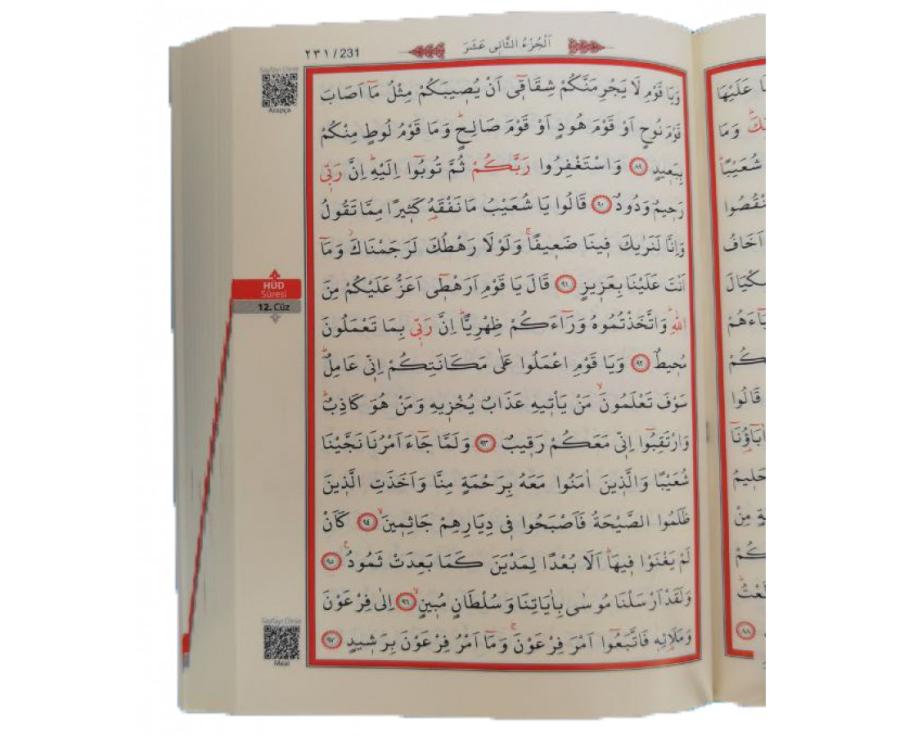 ٢٣١ / 231
اَلْجُزْءُ الثَّانِى عَشَرَ
Sayfayı Dinle
Arapça
وَيَا قَوْمِ لَا يَجْرِمَنَّكُمْ شِقَاقٖٓى اَنْ يُصٖيبَكُمْ مِثْلُ مَٓا اَصَابَ
قَوْمَ نُوحٍ اَوْ قَوْمَ هُودٍ اَوْ قَوْمَ صَالِحٍؕ وَمَا قَوْمُ لُوطٍ مِنْكُمْ
بِبَعٖيدٍ ﴿٨٩﴾ وَاسْتَغْفِرُوا رَبَّكُمْ ثُمَّ تُوبُٓوا اِلَيْهِؕ اِنَّ رَبّٖى
رَحٖيمٌ وَدُودٌ ﴿٩٠﴾ قَالُوا يَا شُعَيْبُ مَا نَفْقَهُ كَثٖيرًا مِمَّا تَقُولُ
وَاِنَّا لَنَرٰيكَ فٖينَا ضَعٖيفًاۚ وَلَوْلَا رَهْطُكَ لَرَجَمْنَاكَؗ وَمَٓا
اَنْتَ عَلَيْنَا بِعَزٖيزٍ ﴿٩١﴾ قَالَ يَا قَوْمِ اَرَهْطٖٓى اَعَزُّ عَلَيْكُمْ مِنَ
اللّٰهِؕ وَاتَّخَذْتُمُوهُ وَرَٓاءَكُمْ ظِهْرِيًّاؕ اِنَّ رَبّٖى بِمَا تَعْمَلُونَ
مُحٖيطٌ ﴿٩٢﴾ وَيَا قَوْمِ اعْمَلُوا عَلٰى مَكَانَتِكُمْ اِنّٖى عَامِلٌؕ
سَوْفَ تَعْلَمُونَۙ مَنْ يَأْتٖيهِ عَذَابٌ يُخْزٖيهِ وَمَنْ هُوَ كَاذِبٌؕ
وَارْتَقِبُٓوا اِنّٖى مَعَكُمْ رَقٖيبٌ ﴿٩٣﴾ وَلَمَّا جَٓاءَ اَمْرُنَا نَجَّيْنَا
شُعَيْبًا وَالَّذٖينَ اٰمَنُوا مَعَهُ بِرَحْمَةٍ مِنَّا وَاَخَذَتِ الَّذٖينَ
ظَلَمُوا الصَّيْحَةُ فَاَصْبَحُوا فٖى دِيَارِهِمْ جَاثِمٖينَۙ ﴿٩٤﴾ كَاَنْ
لَمْ يَغْنَوْا فٖيهَاؕ اَلَا بُعْدًا لِمَدْيَنَ كَمَا بَعِدَتْ ثَمُودُ۟ ﴿٩٥﴾
وَلَقَدْ اَرْسَلْنَا مُوسٰى بِاٰيَاتِنَا وَسُلْطَانٍ مُبٖينٍۙ ﴿٩٦﴾ اِلٰى فِرْعَوْنَ
وَمَلَا۬ئِهٖ فَاتَّبَعُٓوا اَمْرَ فِرْعَوْنَۚ وَمَٓا اَمْرُ فِرْعَوْنَ بِرَشٖيدٍ ﴿٩٧﴾
HÛD
Sûresi
12. Cüz
Sayfayı Dinle
Meal
عَلَيْهَا
وَمَا
شُعَيْبًا
تَنْقُصُوا
اَخَافُ
كُمْ
قَالُوا
مِنْ
كُمْ
﴿٨٨﴾